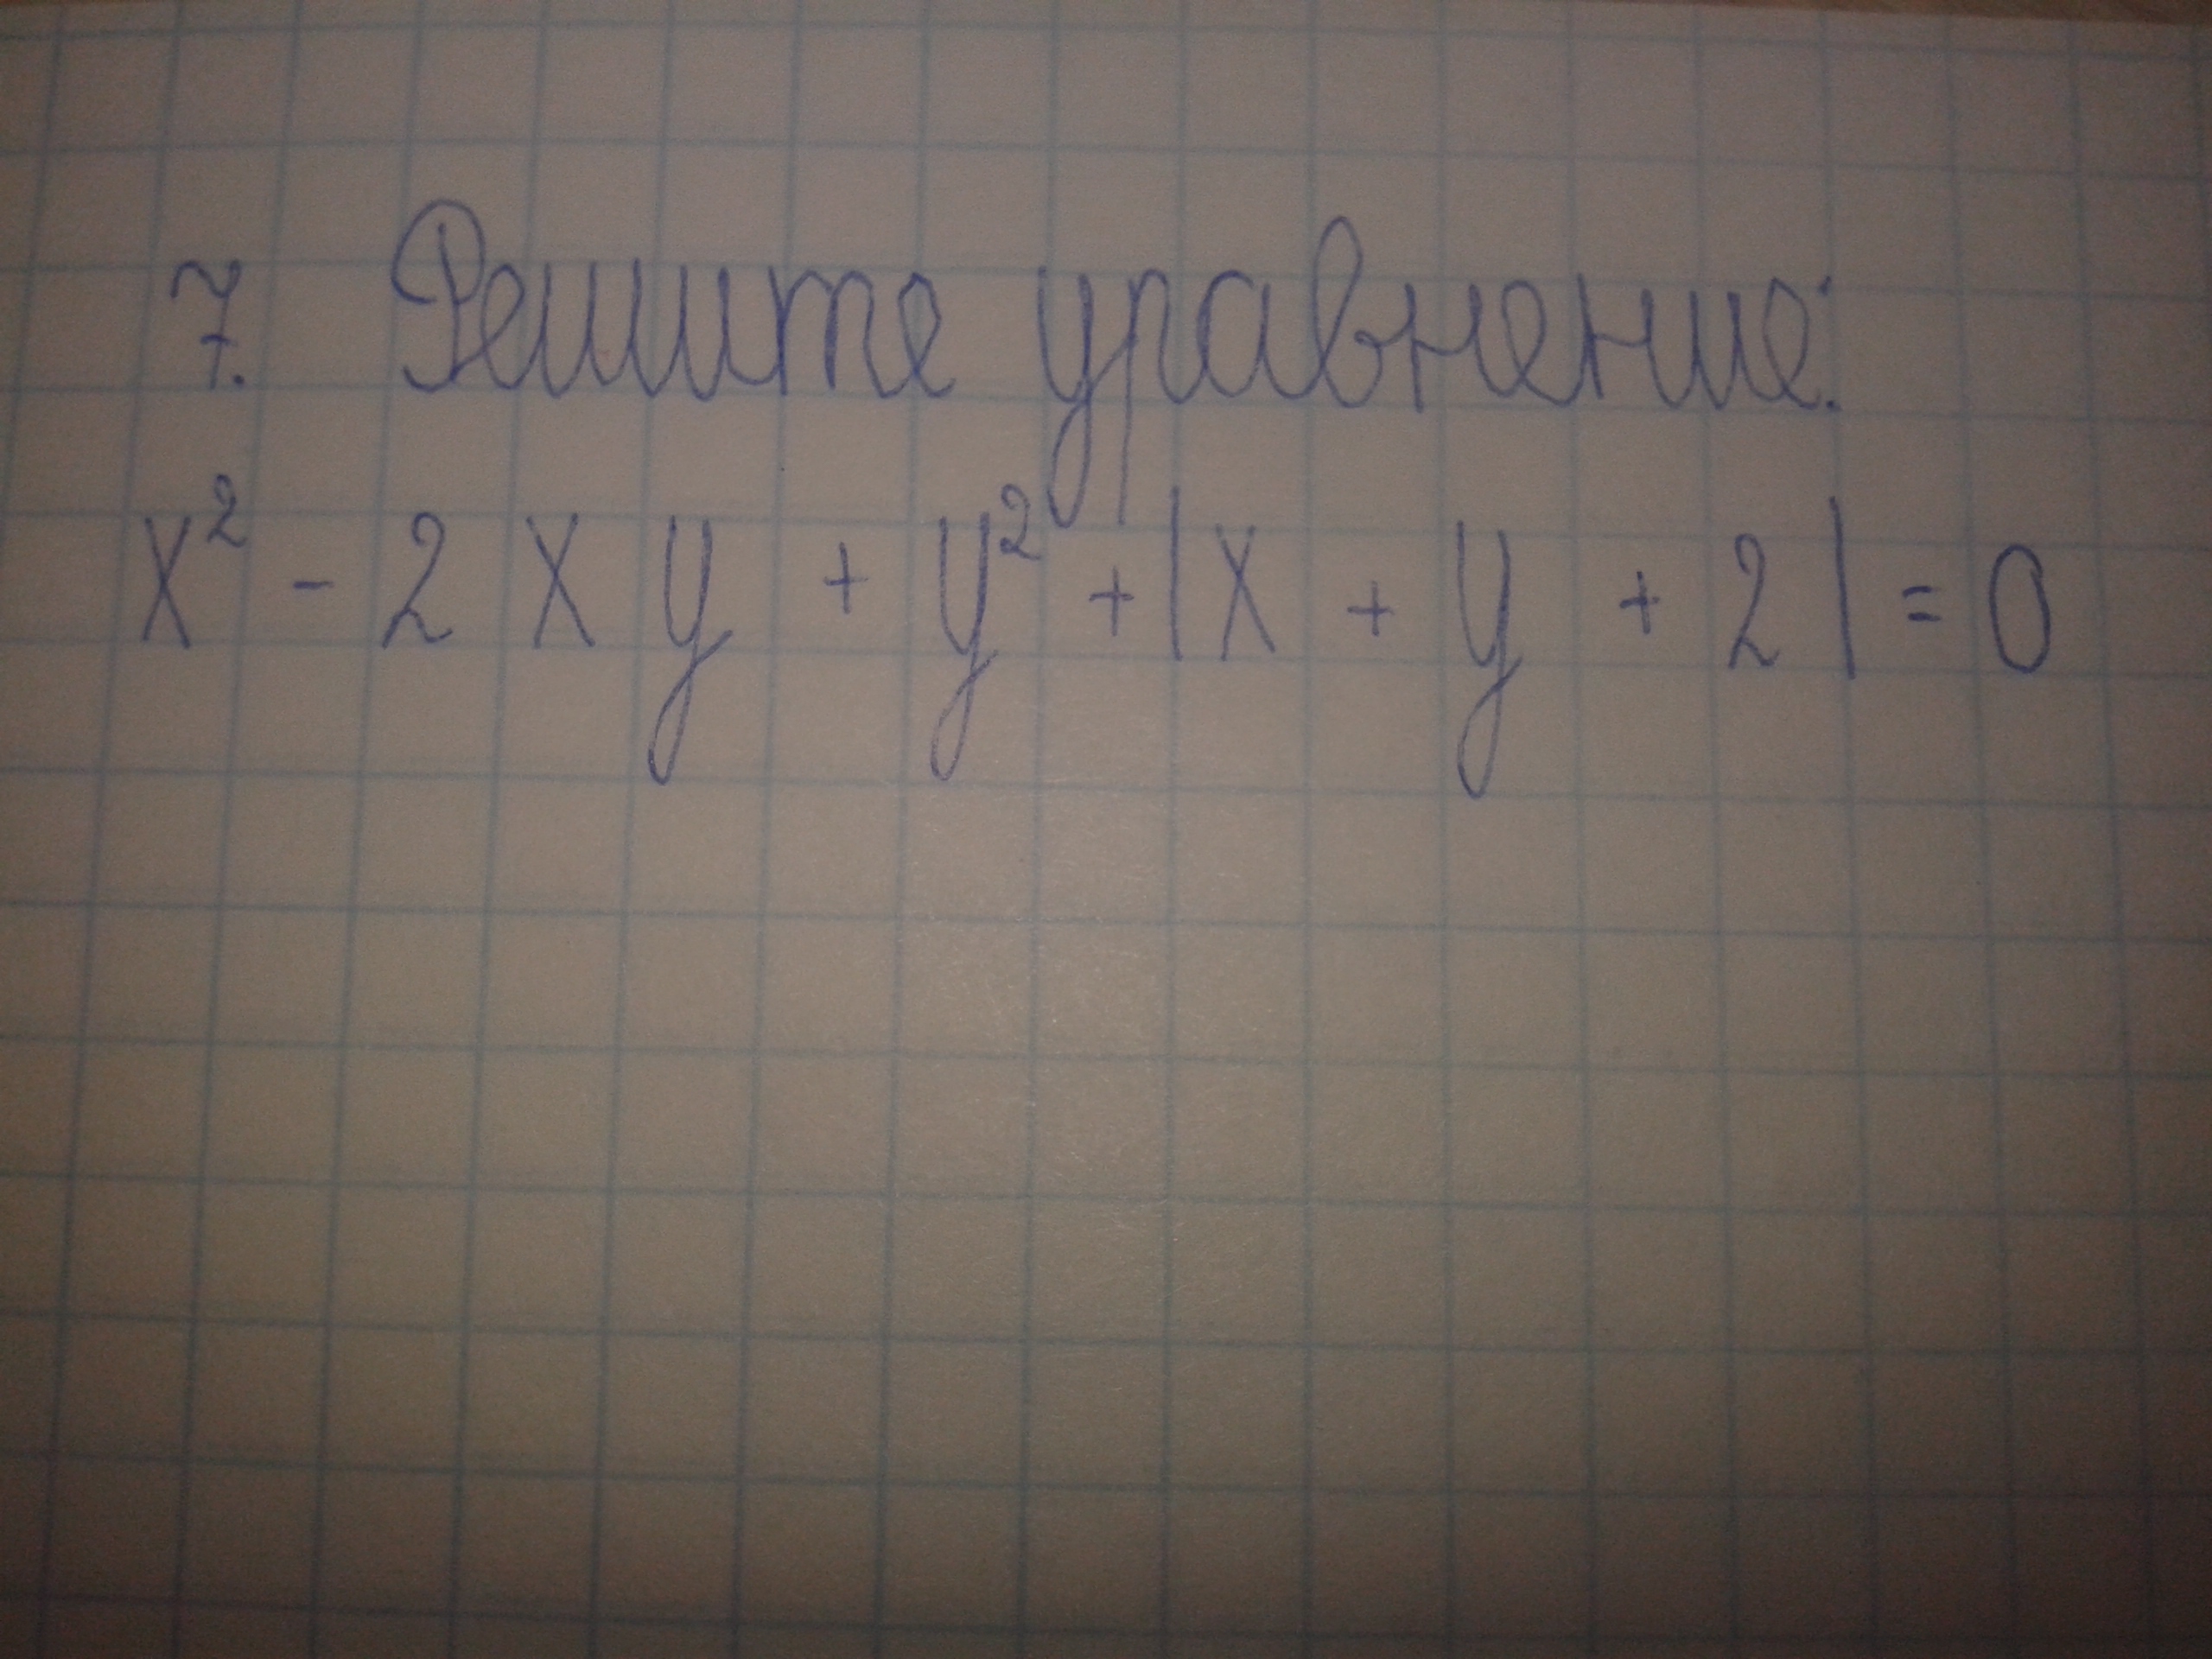 7. Решите уравнение:
x² - 2xy + y² + |x + y + 2| = 0